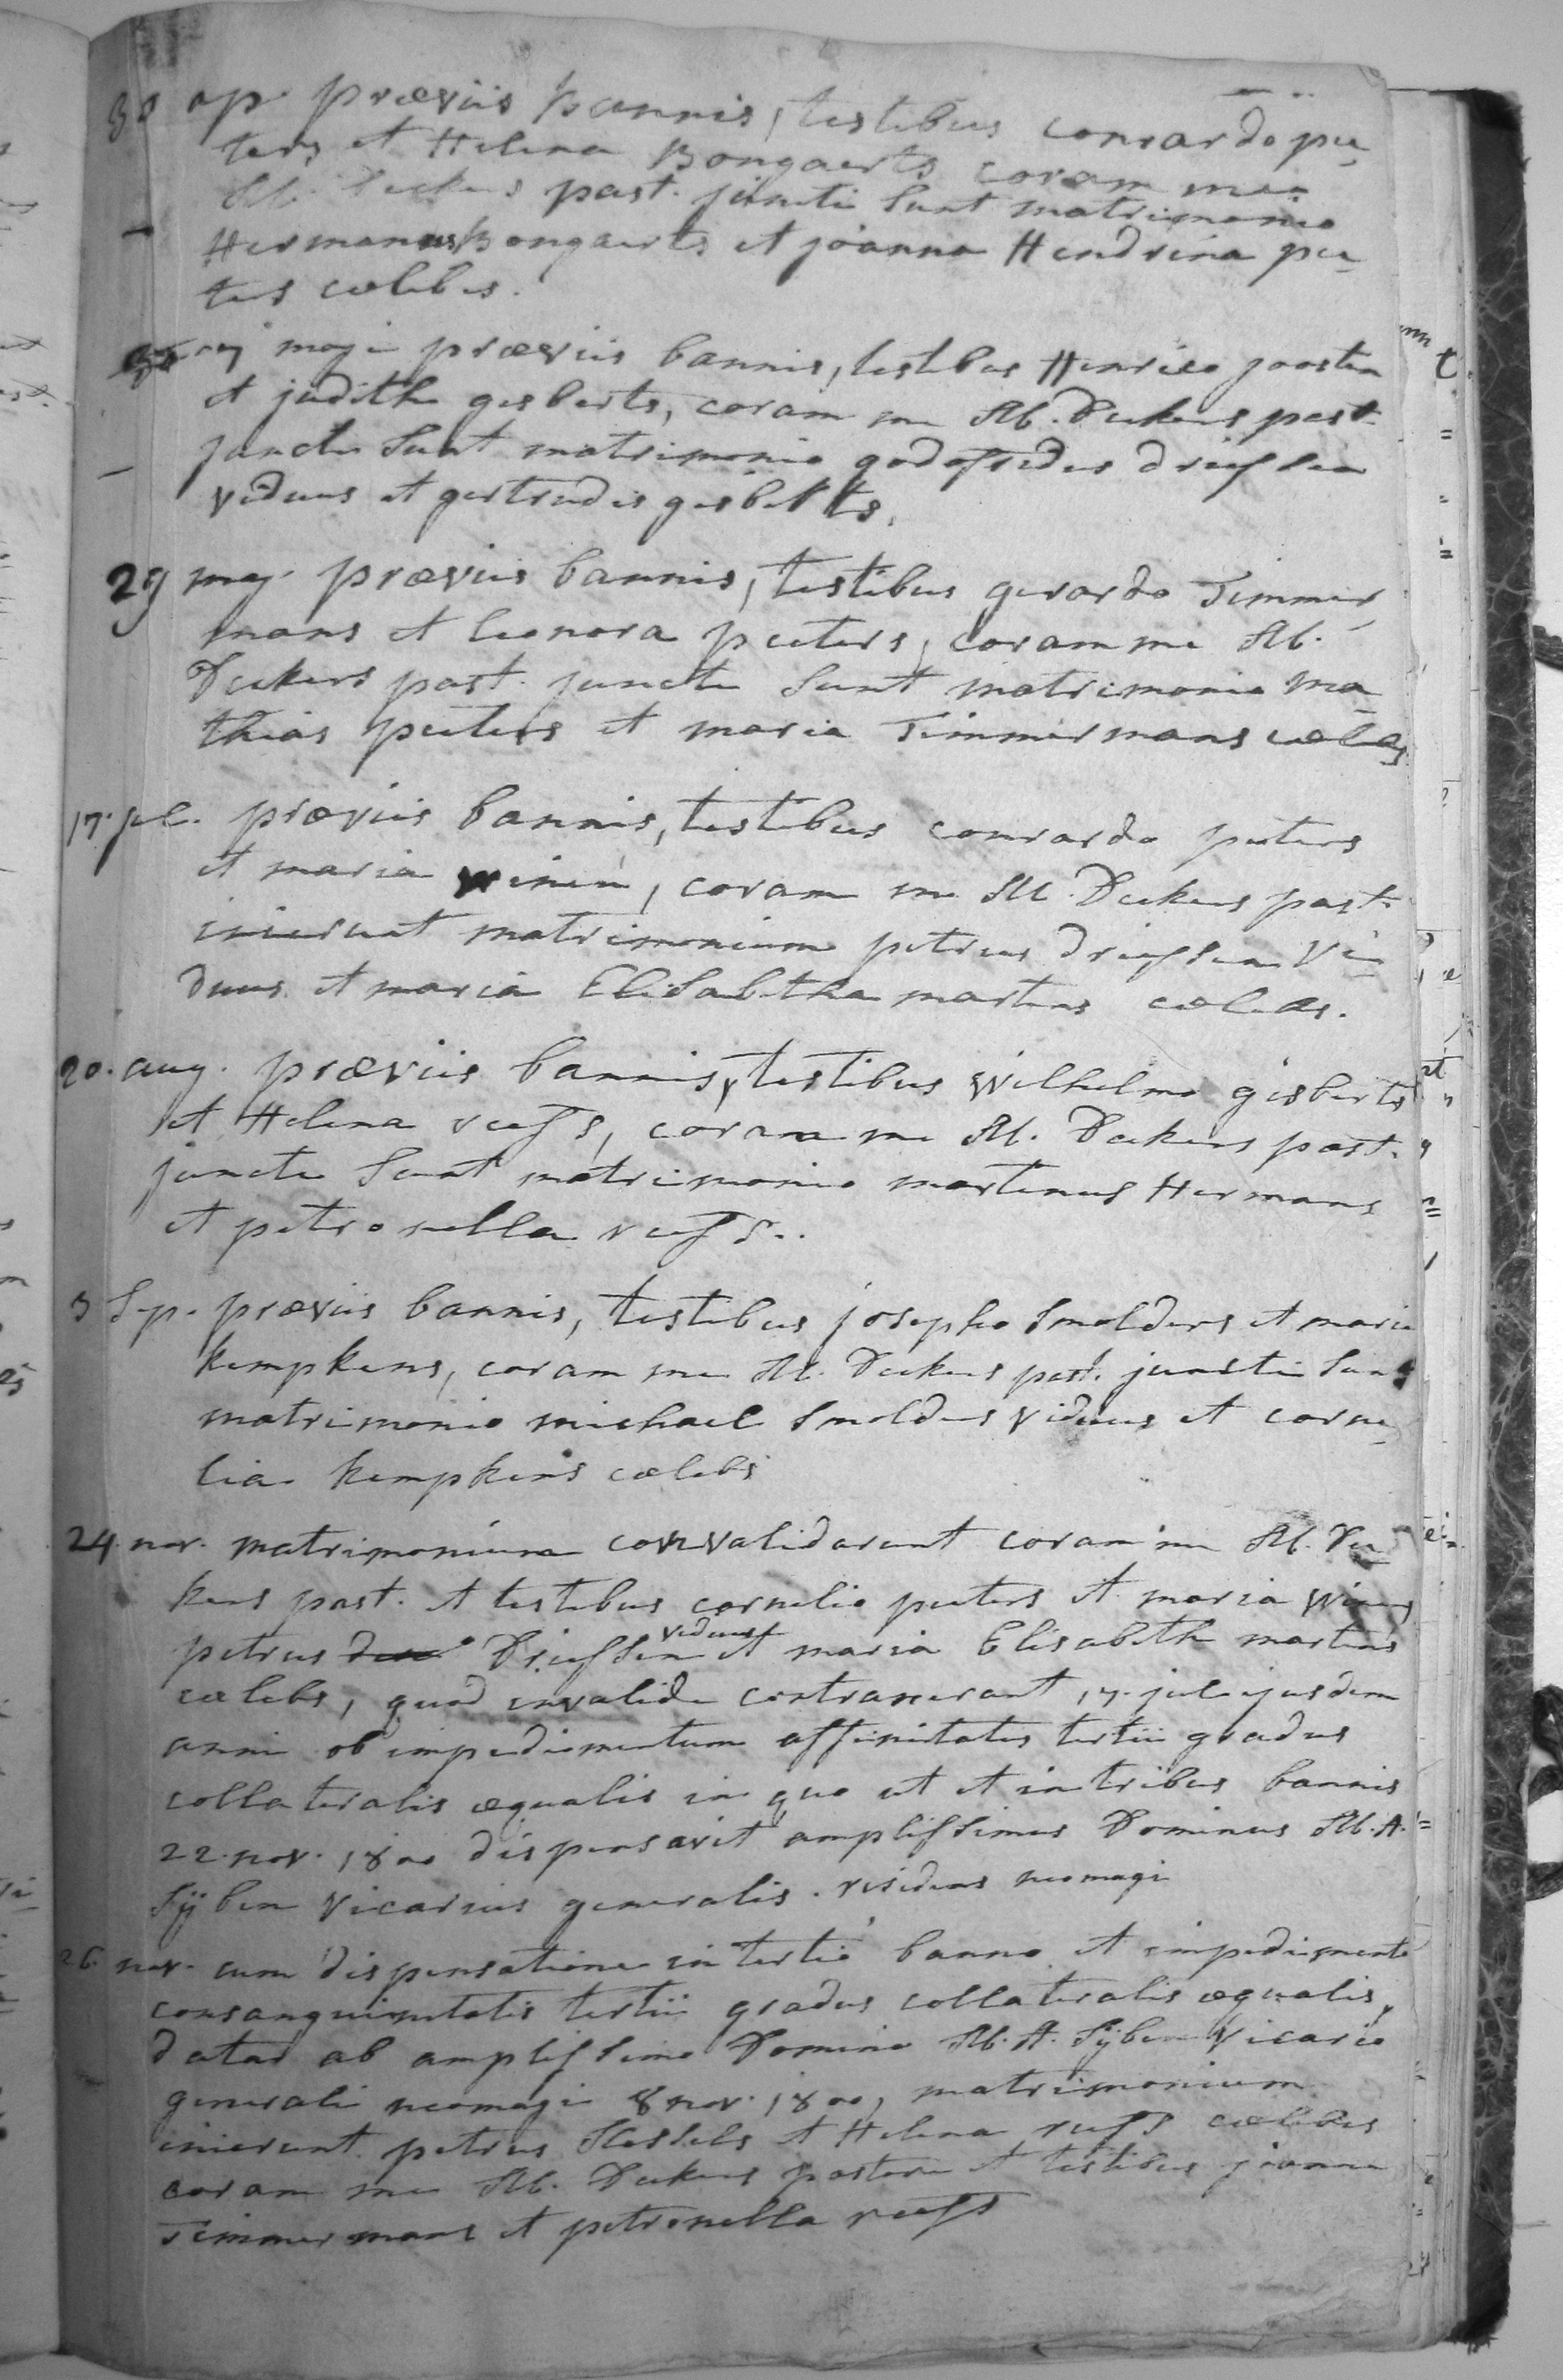 30 ap. præviis bannis, testibus conrardo pee,
ters et Helena Bongaerts coram me
M. Deckers past. juncti sunt matrimonio
Hermanus Bongaerts et joanna Hendrina pee,
ters cœlibes.
maji præviis bannis, testibus Henrico joosten
et judith gesberts, coram me M. Deckers past.
juncti sunt matrimonio godefridus driessen
viduus et gertrudis gisberts.
29 maj. præviis bannis, testibus gerardo Timmer,
mans et leonora peeters, coram me M.
Deckers past. juncti sunt matrimonio ma
thias peeters et maria Timmermans cœlebs
17. jul. præviis bannis, testibus conrardo peeters
et maria winen, coram me M. Deckers past.
inierunt matrimonium petrus driessen vi-
duus et maria Elisabetha martens cœlebs.
20. aug. præviis bannis, testibus Wilhelmo gisberts
et Helena reess, coram me M. Deckers past.
juncti sunt matrimonio martinus Hermans
et petronella reess.
3 Sep. præviis bannis, testibus josepho Smolders et maria
kempkens, coram me M. Deckers past. juncti sunt
matrimonio michael Smolders viduus et corne,
lia kempkens cœlebs
24. nov. matrimonium convalidarunt coram me M. Dec
kers past. et testibus cornelio peeters et maria winen
petrus Driessen viduus et maria Elisabeth martens
cœlebs, quod invalide contraxerant 17. jul ejusdem
anni ob impedimentum affinitatis tertii gradus
collateralis æqualis in quo ut et in tribus bannis
22. nov. 1800 dispensavit amplissimus Dominus M. A.
Sÿben vicarius generalis. residens neomagi
26. nov. cum dispensatione in tertio banno et impedimento
consanguinitatis tertii gradus collateralis æqualis,
datar ab amplissimo Domino M. A. Sÿben vicario
generali neomagi 8 nov. 1800, matrimonium
inierunt petrus Hessels et Helena reess cœlibes
coram me M. Deckers pastore et testibus joanne
Timmermans et petronella reess